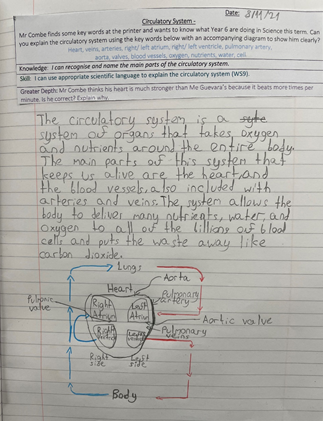 Date: 8/11/21
Circulatory System -
Mr Combe finds some key words at the printer and wants to know what Year 6 are doing in Science this term. Can
you explain the circulatory system using the key words below with an accompanying diagram to show him clearly?
Heart, veins, arteries, right/ left atrium, right/ left ventricle, pulmonary artery,
aorta, valves, blood vessels, oxygen, nutrients, water, cell
Knowledge: I can recognise and name the main parts of the circulatory system.
Skill: I can use appropriate scientific language to explain the circulatory system (WS9).
Greater Depth: Mr Combe thinks his heart is much stronger than Me Guevara's because it beats more times per
minute. Is he correct? Explain why.
The circulatory system is a
system of organs that takes oxygen
and nutrients around the entire body.
The main parts of this system that
keeps us alive are the heart, and
the blood vessels, also included with
arteries and veins. The system allows the
body to deliver many nutrients, water, and
oxygen to all of the billions of blood
cells and puts the waste away like
carbon dioxide.
Lungs
Heart
Aorta
Pulmonary
artery
valve
Right
Atrium
Left
Atrium
Aortic valve
Right
Pulmonary
veins
Right
side
Left
side
Body